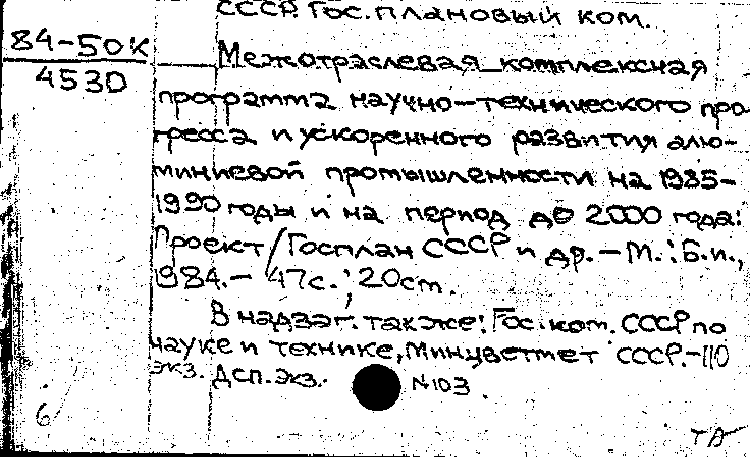 СССР. Гос. плановый ком.
84-50К
4530
Межотраслевая комплексная
программа научно-технического про
гресса и ускоренного развития алю-
миниевой промышленности на 1985-
1990 годы и на период до 2000 года:
Проект/Госплан СССР и др. - М.: Б.и.,
1984. - 47с.; 20 cm.
В надзаг. также: Гос. ком. СССР по
науке и технике, Минцветмет СССР. - 110
экз. ДСП. Экз. N103.
6